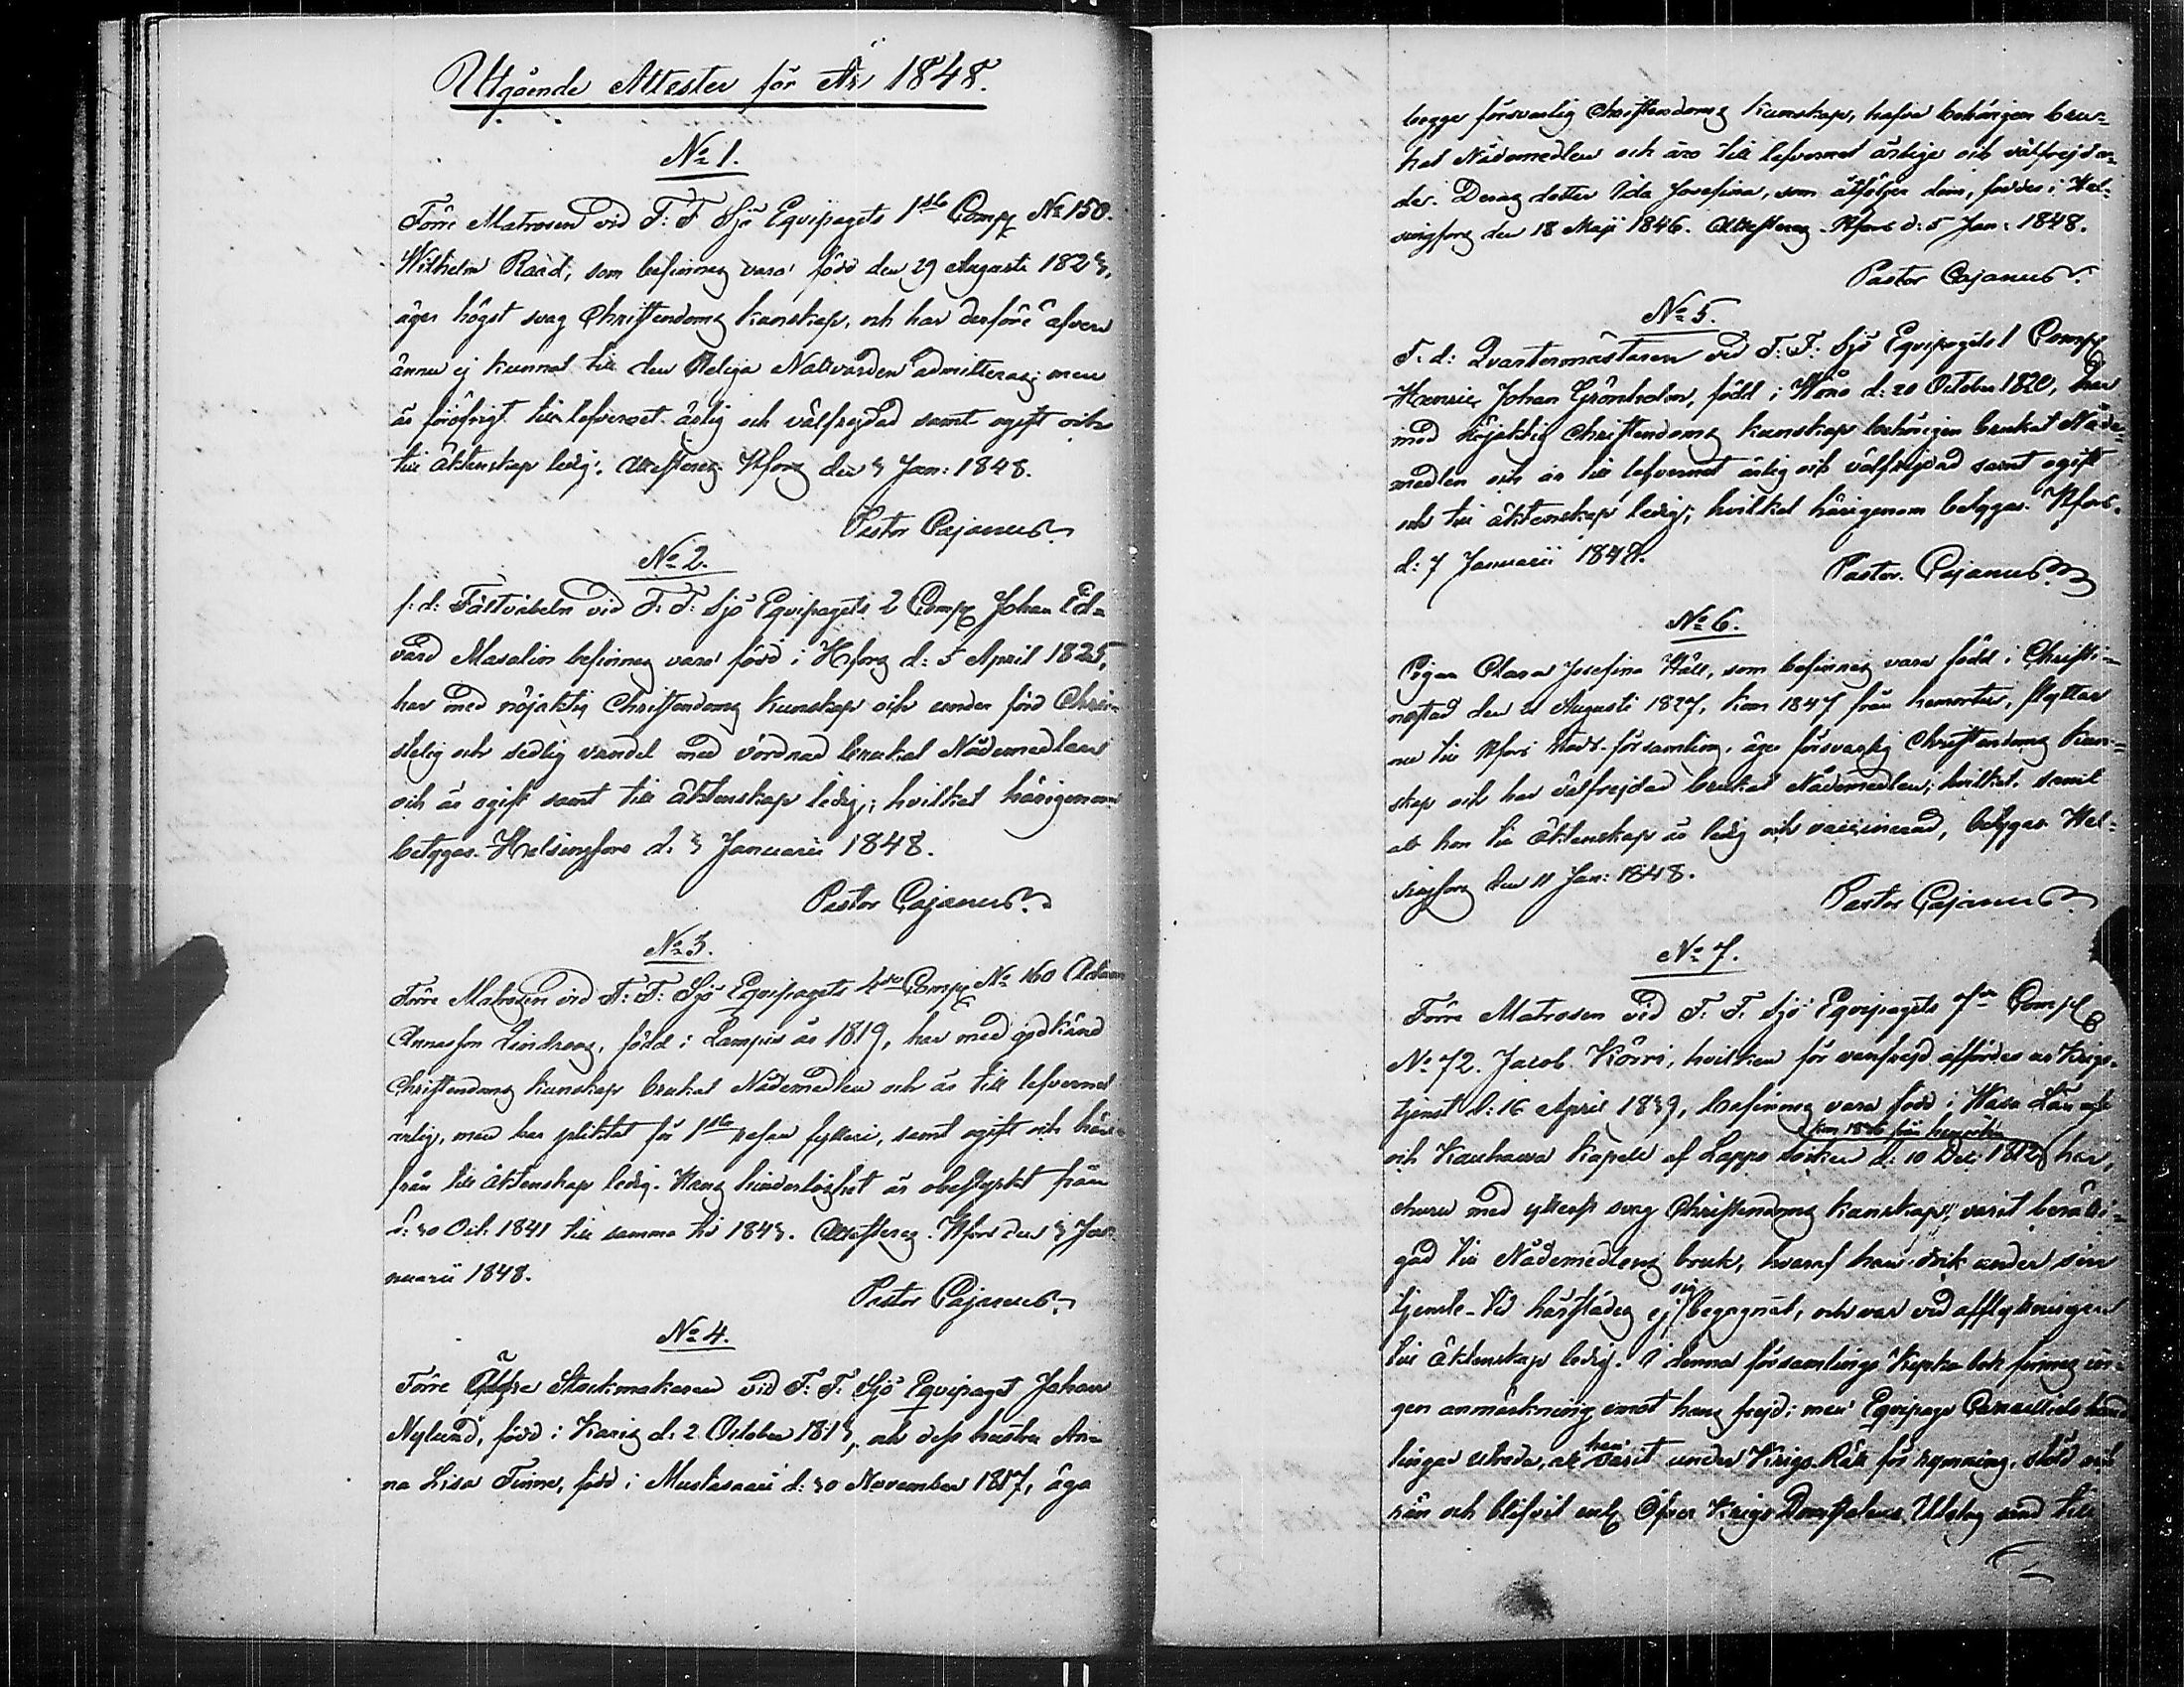 Utgående Attester för År 1848.
No 1.
Förre Matrosen vid F: F Sjö Equipagets 1sta Comp No 150.
Wilhelm Raad, som befinnes vara född den 29 Augusti 1823,
äger högst svag Christendoms kunskap, och har derföre äfven
ännu ej kunnat till den Heliga Nattvarden admitteras; men
är föröfrigt till lefvernet ärlig och välfrejdad samt ogift och
till äktenskap ledig. Attesteras Hfors den 3 Jan: 1848.
Pastor Cajanus.
No 2.
f: d: Fältväbeln vid F: F: Sjö Equipagets 2 Comp Johan Ed=
vard Masalin befinnes vara född i Hfors d: 5 April 1825,
har med nöjaktig Christendoms kunskap och under förd Chri=
stelig och sedlig vandel med vördnad brukat Nådemedlen
och är ogift samt till äktenskap ledig; hvilket härigenom
betygas. Helsingfors d: 3 Januarii 1848.
Pastor Cajanus.
No 3.
Förre Matrosen vid F: F: Sjö Equipagets 4de Comp No 160 Adam
Annasson Lindroos, född i Lampis år 1819, har med godkänd
Christendoms kunskap brukat Nådemedlen och är till lefvernet
ärlig, men har pliktat för 1sta resan fylleri, samt ogift och här=
från till äktenskap ledig. Hans hinderlöshet är obestyrkt från
d: 30 Oct: 1841 till samma tid 1843. Attesteras. Hfors den 3 Ja=
nuarii 1848.
Pastor Cajanus.
No 4.
Förre Stockmakaren vid F: F: Sjö Equipaget Johan
Nylund, född i Karis d: 2 October 1813, och dess hustru An=
na Lisa Finne, född i Mustasaari d: 30 November 1817, äga
begge försvarlig Christendoms kunskap, hafva behörigen bru=
kat Nådemedlen och äro till lefvernet ärliga och välfrejda=
de. Deras dotter Ida Josefina, som åtföljer dem, föddes i Hel=
singfors den 18 Maji 1846. Attesteras Hfors d: 5 Jan: 1848.
Pastor Cajanus.
No 5.
F. d: Qvartermästaren vid F: F: Sjö Equipagets 1 Comp
Henric Johan Grönholm, född i d: 20 October 1820, har
med nöjaktig Christendoms kunskap behörigen brukat Nåde=
medlen och är till lefvernet ärlig och välfrejdad samt ogift
och till äktenskap ledig; hvilket härigenom betygas. Hfors.
d: 7 Januarii 1848.
Pastor Cajanus.
No 6.
Pigan Clara Josefina Häll, som befinnes vara född i Christi=
nestad den 21 Augusti 1827, kom 1847 från hemorten, flyttar
nu till Hfors Stads församling, äger försvarlig Christendoms kun=
skap och har välfrejdad brukat Nådemedlen; hvilket samt
att hon till äktenskap är ledig och vaccinerad, betygas Hel=
singfors den 11 Jan: 1848.
Pastor Cajanus
No 7.
Förre Matrosen vid F: F: Sjö Equipagets Comp
No 72. Jacob Köiri, hvilken för vanfrejd affördes ur Krigs=
tjenst d: 16 April 1839, befinnes vara född i Wasa Län
kom 1836 från hemorten
och Kauhava Kapell af Lappo socken d: 10 Dec: 1812, har,
ehuru med ytterst svag Christendoms kunskap, varit berätti=
gad till Nådemedlens bruk, hvaraf han dock under sin
sig
tjenste-tid härstädes ej begagnat, och var vid afflyttningen
till äktenskap ledig. I denna församlings Kyrko bok finnes in=
gen anmärkning emot hans frejd; men Equipage Cancelliets hand=
han
lingar utreda, att varit under Krigs Rätt för rymning, stöld och
rån och blifvit enl Öfver Krigs Domstolens Utslag sänd till